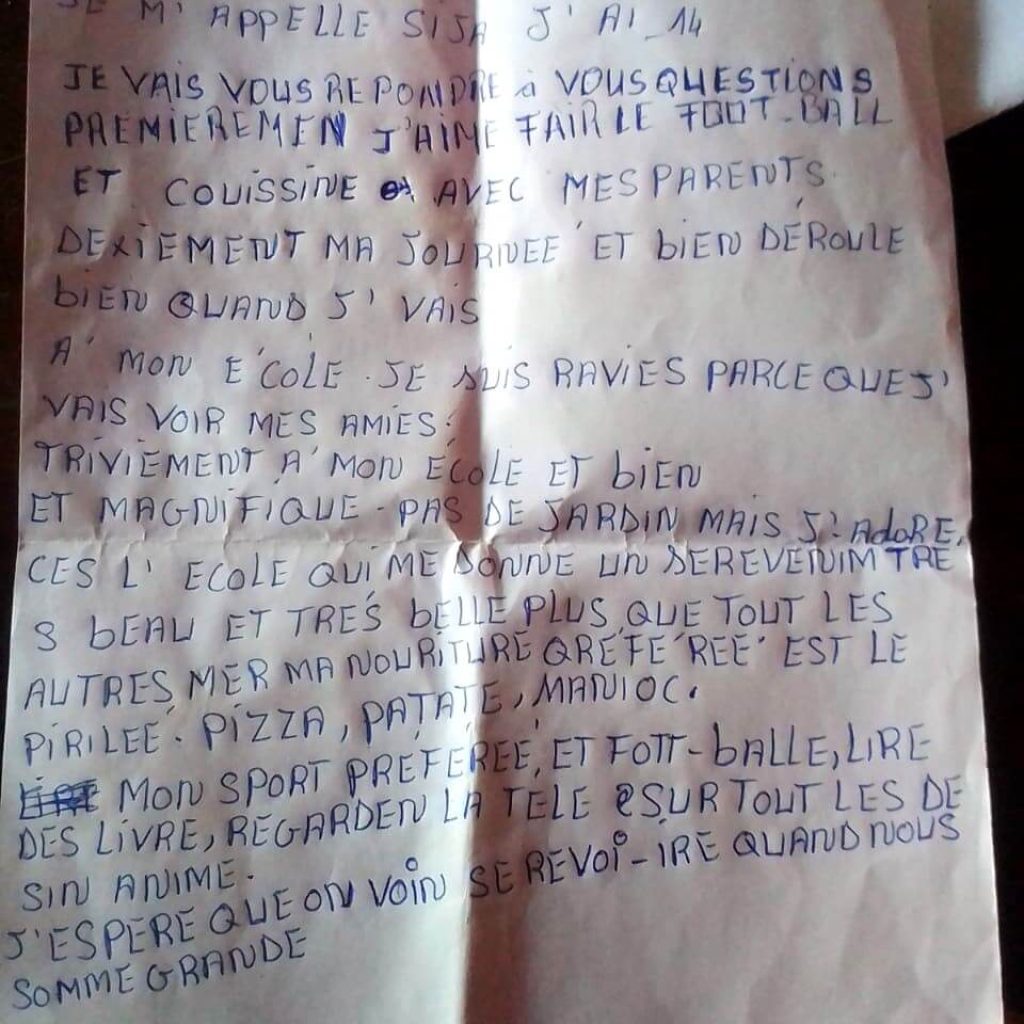 JE M' APPELLE SIJA J' AI_14
JE VAIS VOUS REPONDRE à VOUS QUESTIONS
PREMIEREMEN J'AIME FAIR LE FOOT-BALL
ET COUISSINE AVEC MES PARENTS.
DEXIEMENT MA JOURNEE' ET biEN DÉROULE
biEN QUAND J' VAIS
A' MON E'COLE. JE SUIS RAVIES PARCE QUE J'
VAIS VOIR MES AMIES:
TRIVIEMENT A' MON ÉCOLE ET biEN
ET MAGNIFIQUE - PAS DE JARDIN MAIS J' AdoRE.
CES L' ECOLE QUI ME DONNE UN SEREVENIM TRE
S bEAU ET TRES bELLE PLUS QUE TOUT LES
AUTRES MER MA NOURITURE QREFE'REE' EST LE
PIRILEE. PIZZA, PATATE, MANIOC.
MON SPORT PREFEREE, ET FOTT-bALLE, LIRE
DES LIVRE, REGARDEN LA TELE SUR TOUT LES DE
SIN ANIME.
J'ESPERE QUE ON VOIN SE REVOI-IRE QUAND NOUS
SOMME GRANDE